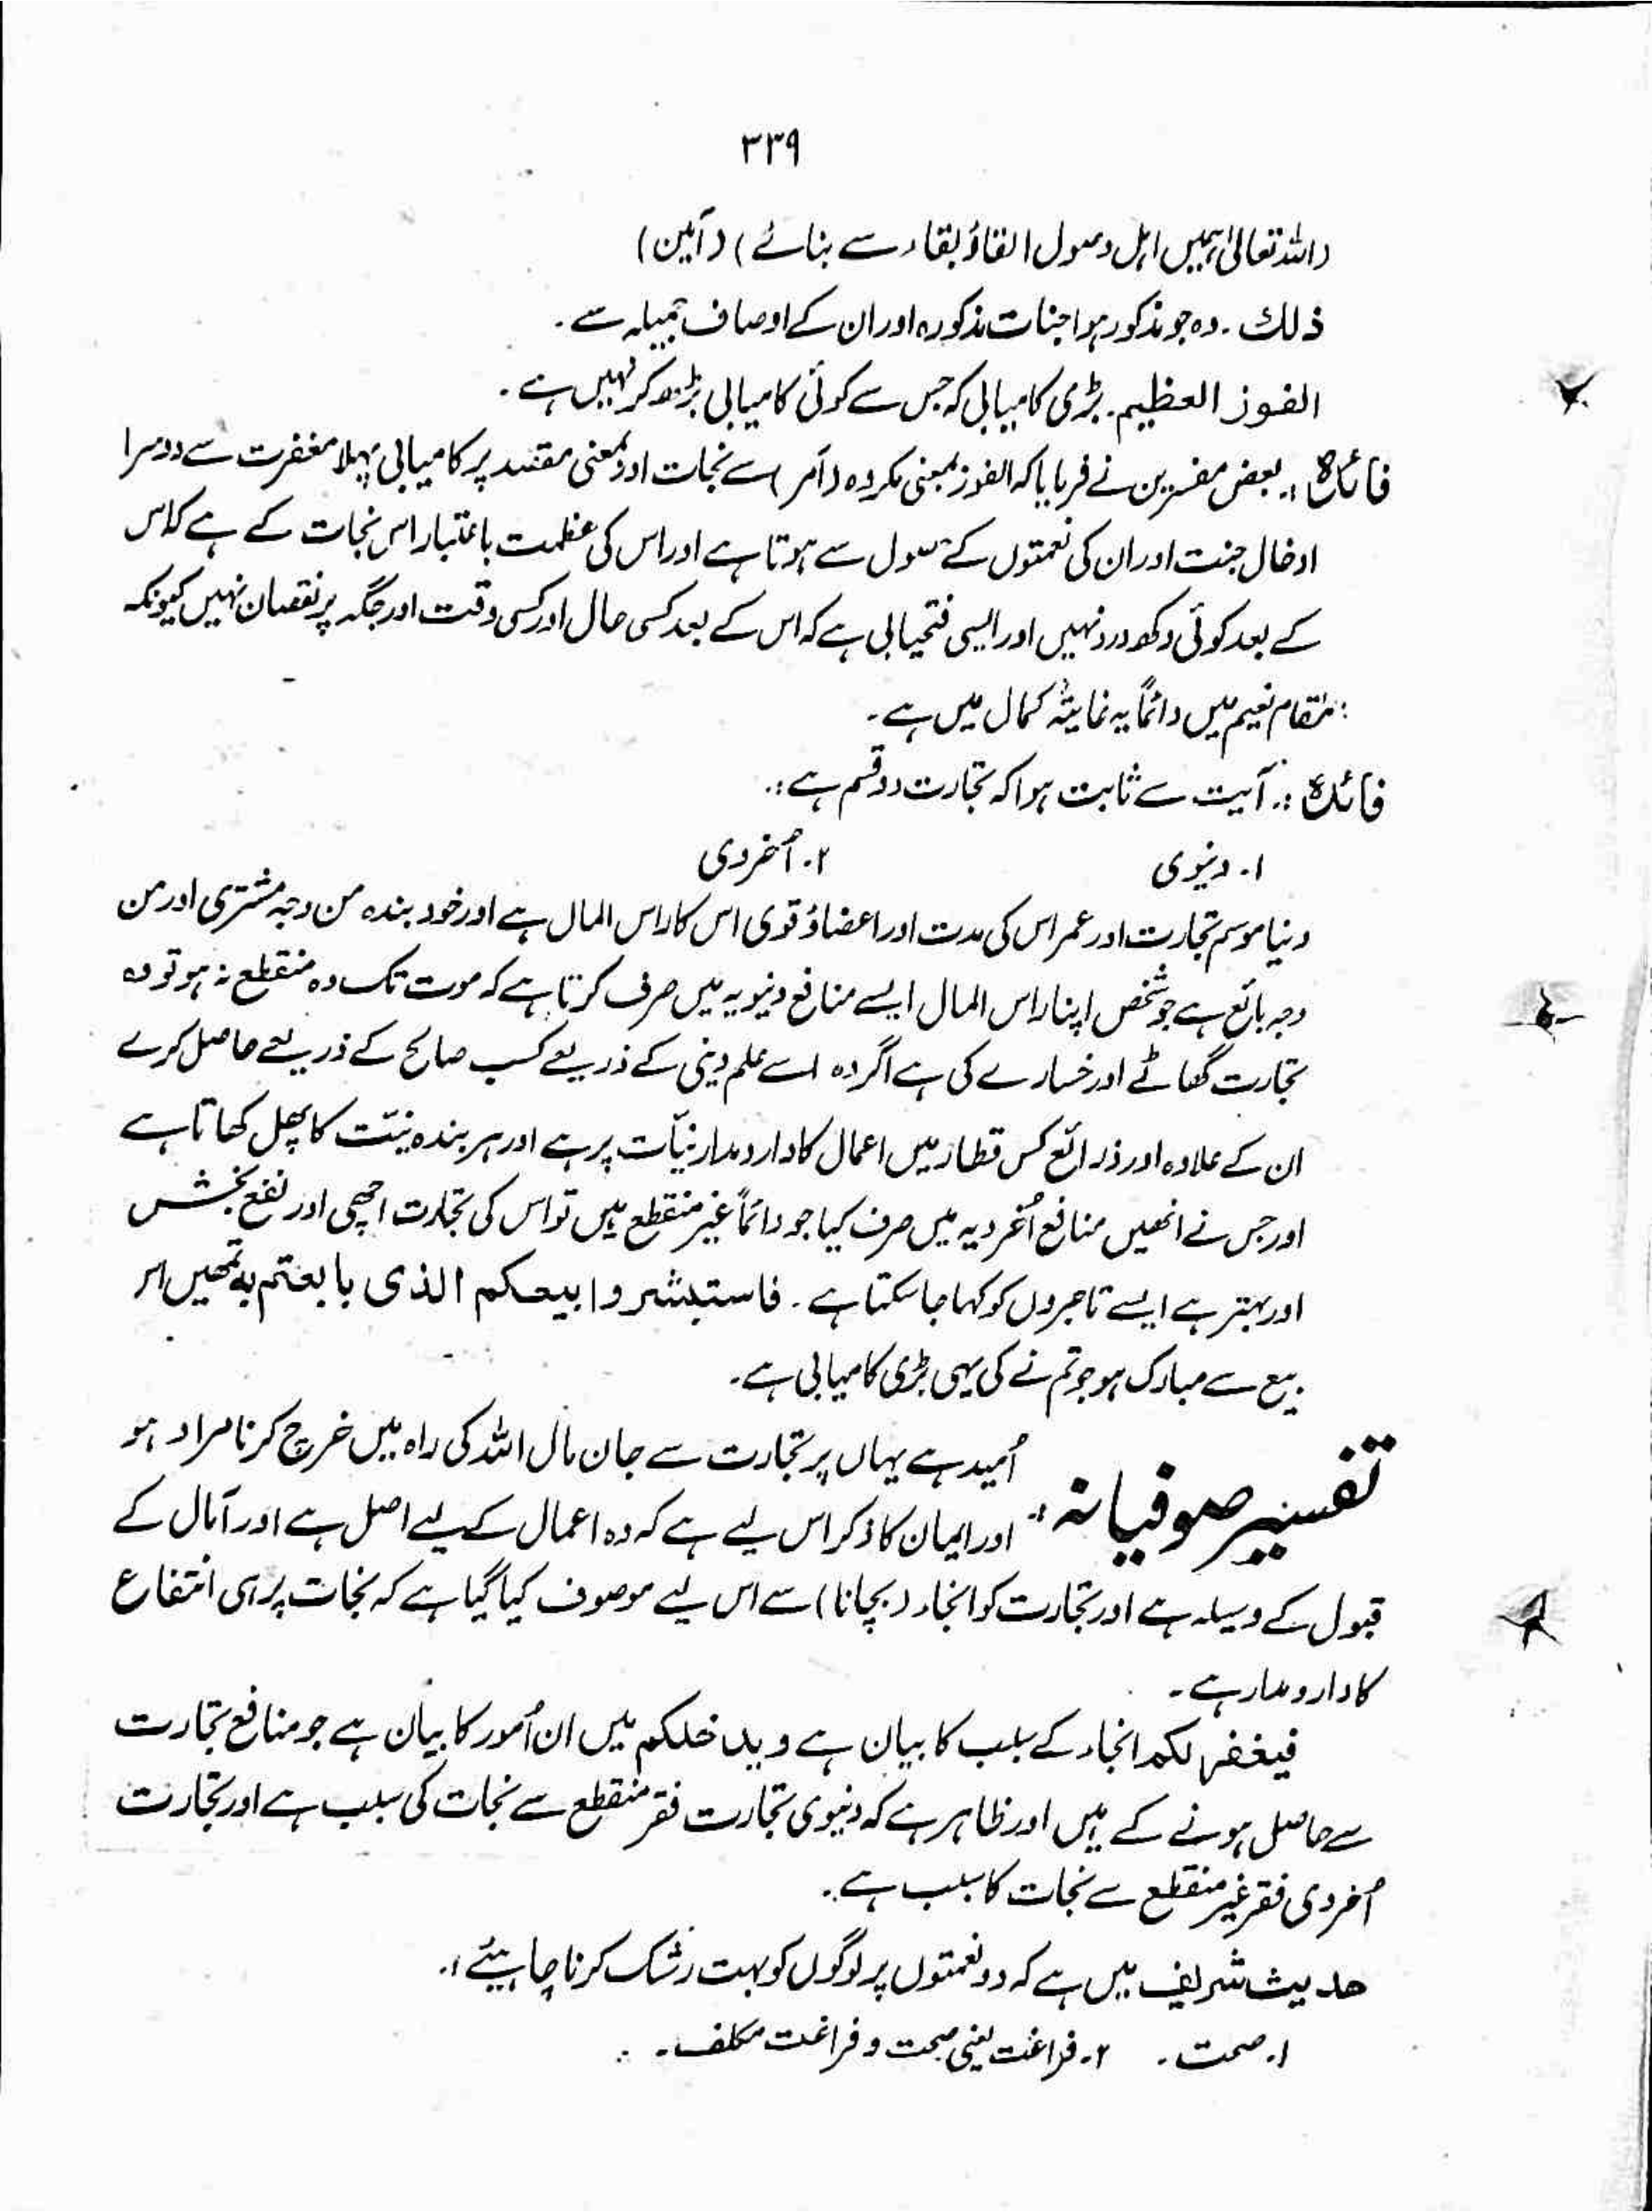 ۳۳۹
(اللہ تعالیٰ ہمیں اہل وصول القاؤ بقاء سے بنائے) (آمین)
ذلك ۔ وہ جو مذکور ہوا جنات مذکورہ اور ان کے اوصاف جمیلہ سے ۔
الفوز العظیم ۔ بڑی کامیابی کہ جس سے کوئی کامیابی بڑھ کر نہیں ہے ۔
فائدہ :۔ بعض مفسرین نے فرمایا کہ الفوز بمعنی مکروہ (آمر) سے نجات اور بمعنی مقصد پر کامیابی پہلا مغفرت سے دوسرا
ادخال جنت اور ان کی نعمتوں کے حصول سے ہوتا ہے اور اس کی عظمت باعتبار اس نجات کے ہے کہ اس
کے بعد کوئی دکھ درد نہیں اور ایسی فتحیابی ہے کہ اس کے بعد کسی حال اور کسی وقت اور جگہ پر نقصان نہیں کیونکہ
مقام نعیم میں دائماً یہ نمایشہ کمال میں ہے ۔
فائدہ :۔ آیت سے ثابت ہوا کہ تجارت دو قسم ہے :۔
۱۔ دنیوی ۲۔ اُخروی
دنیا موسم تجارت اور عمر اس کی مدت اور اعضاؤ قوی اس کا راس المال ہے اور خود بندہ من وجہ مشتری اور من
وجہ بائع ہے جو شخص اپنا راس المال ایسے منافع دنیویہ میں صرف کرتا ہے کہ موت تک وہ منقطع نہ ہو تو وہ
تجارت گھاٹے اور خسارے کی ہے اگر وہ اسے علم دینی کے ذریعے کسب صالح کے ذریعے حاصل کرے
ان کے علاوہ اور ذرائع کس قطار میں اعمال کا دارومدار نیّات پر ہے اور ہر بندہ نیّت کا پھل کھاتا ہے
اور جس نے انھیں منافع اُخرویہ میں صرف کیا جو دائماً غیر منقطع ہیں تو اس کی تجارت اچھی اور نفع بخش
اور بہتر ہے ایسے تاجروں کو کہا جا سکتا ہے ۔ فاستبشروا ببیعکم الذی بایعتم بہ تمھیں اس
بیع سے مبارک ہو جو تم نے کی یہی بڑی کامیابی ہے ۔
تفسیر صوفیانہ : اُمید ہے یہاں پر تجارت سے جان مال اللہ کی راہ میں خرچ کرنا مراد ہو
اور ایمان کا ذکر اس لیے ہے کہ وہ اعمال کے لیے اصل ہے اور آمال کے
قبول کے وسیلہ ہے اور تجارت کو انجاء (بچانا) سے اس لیے موصوف کیا گیا ہے کہ نجات پر ہی انتفاع
کا دارومدار ہے ۔
فیغفر لکم انجاء کے سبب کا بیان ہے ویدخلکم میں ان اُمور کا بیان ہے جو منافع تجارت
سے حاصل ہونے کے ہیں اور ظاہر ہے کہ دنیوی تجارت فقر منقطع سے نجات کی سبب ہے اور تجارت
اُخروی فقر غیر منقطع سے نجات کا سبب ہے ۔
حدیث شریف میں ہے کہ دو نعمتوں پر لوگوں کو بہت رشک کرنا چاہیئے :۔
۱۔ صحت ۔ ۲۔ فراغت یعنی صحت و فراغت مکلف ۔